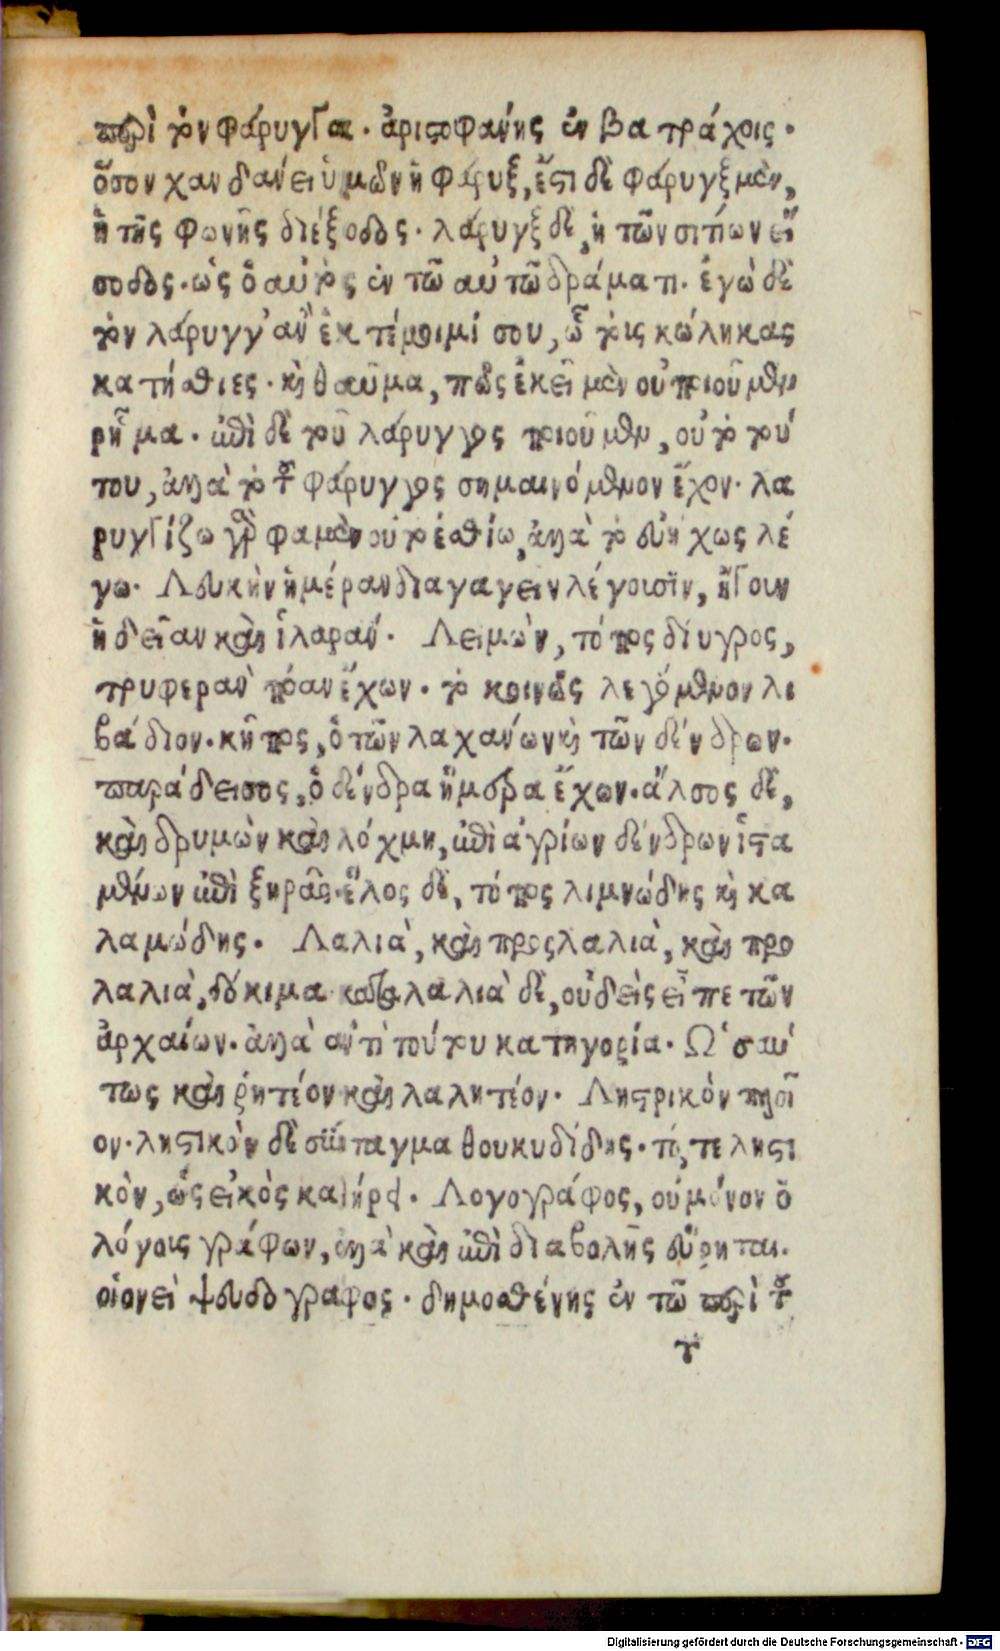 περὶ τὸν φάρυγγα. ἀριστοφάνης ἐν βατράχοις.
ὅσον χανδάνει ὑμῶν ἡ φάρυξ, ἔστι δὲ φάρυγξ μὲν,
ἡ τῆς φωνῆς διέξοδος. λάρυγξ δὲ, ἡ τῶν σιτίων εἴ
σοδος. ὡς ὁ αὐτὸς ἐν τῶ αὐτῶ δράματι. ἐγὼ δὲ
τὸν λάρυγγ' ἂν ἐκτέμοιμί σου, ὦ τὰς κώληκας
κατήσθιες. καὶ θαῦμα, πῶς ἐκεῖ μὲν οὐ ποιοῦμεν
ῥῆμα. ἐπὶ δὲ τοῦ λάρυγγος ποιοῦμεν, οὐ τὸ τού
του, ἀλλὰ τὸ τοῦ φάρυγγος σημαινόμενον ἔχον. λα
ρυγγίζω γὰρ φαμὲν οὐ τὸ ἐσθίω, ἀλλὰ τὸ εὐήχως λέ
γω. Λευκὴν ἡμέραν διαγαγεῖν λέγουσιν, ἤγουν
ἡδεῖαν καὶ ἱλαράν. Λειμὼν, τόπος δίυγρος,
τρυφερὰν πόαν ἔχων. τὸ κοινῶς λεγόμενον λι
βάδιον. κῆπος, ὁ τῶν λαχάνων καὶ τῶν δένδρων.
παράδεισος, ὁ δένδρα ἥμερα ἔχων. ἄλσος δὲ,
καὶ δρυμὼν καὶ λόχμη, ἐπὶ ἀγρίων δένδρων ἱστα
μένων ἐπὶ ξηρᾶς. ἕλος δὲ, τόπος λιμνώδης καὶ κα
λαμώδης. Λαλιὰ, καὶ προςλαλιὰ, καὶ προ
λαλιὰ, δόκιμα. καταλαλιὰ δὲ, οὐδεὶς εἶπε τῶν
ἀρχαίων. ἀλλὰ ἀντὶ τούτου κατηγορία. Ὡσαύ
τως καὶ ῥητέον καὶ λαλητέον. Λῃστρικὸν πλοῖ
ον. λῃστικὸν δὲ σύνταγμα θουκυδίδης. τό, τε λῃστι
κὸν, ὡς εἰκὸς καθῄρει. Λογογράφος, οὐ μόνον ὁ
λόγοις γράφων, ἀλλὰ καὶ ἐπὶ διαβολῆς εὕρηται.
οἱονεὶ ψευδογράφος. δημοσθένης ἐν τῶ περὶ τοῦ
τ
Digitalisierung gefördert durch die Deutsche Forschungsgemeinschaft - DFG